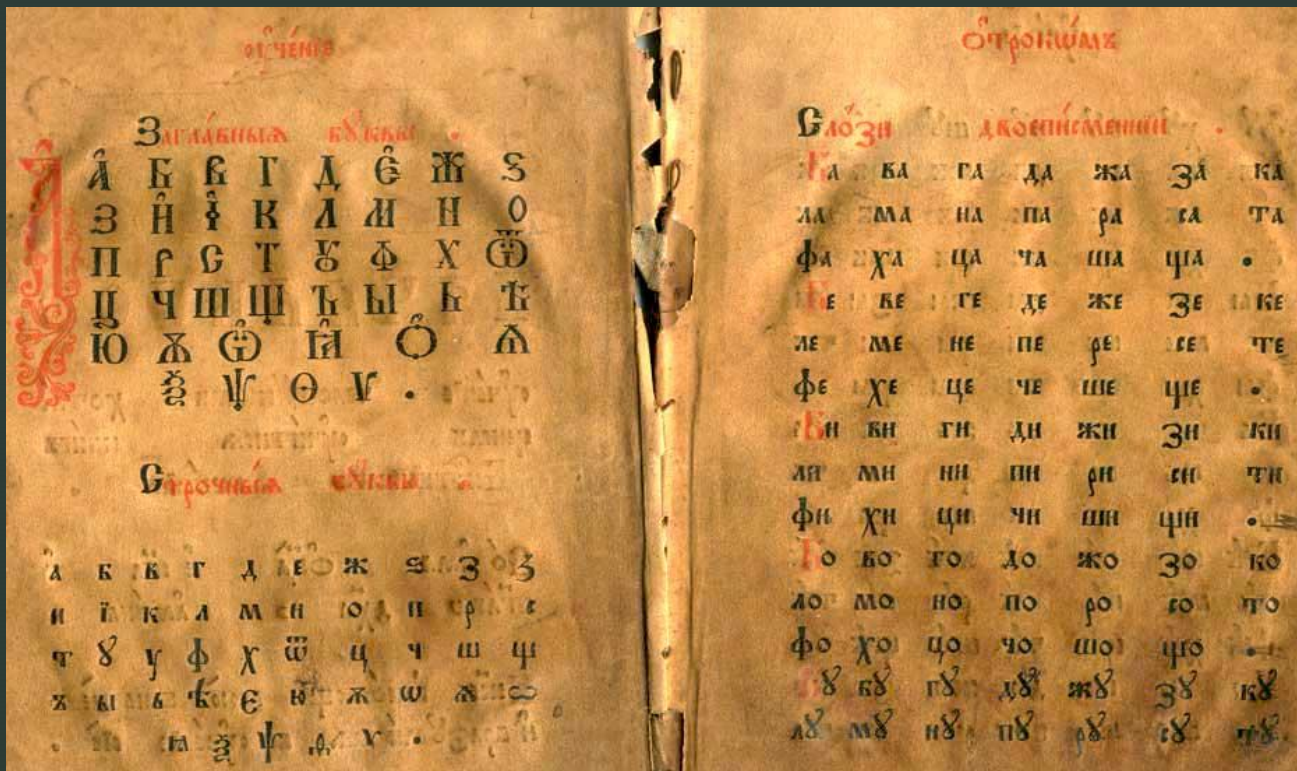 оу҆че́нїе
Загла́вныѧ бꙋ́квы .
А҆ Б В Г Д Є҆ Ж Ѕ
З И҆ І҆ К Л М Н О
П Р С Т Ꙋ Ф Х Ѿ
Ц Ч Ш Щ Ъ Ы Ь Ѣ
Ю҆ Ѫ Ѽ Ꙗ҆ Ѻ҆ Ѧ
Ѯ Ѱ Ѳ Ѵ .
Стро́чныѧ бꙋ́квы
а б в г д е ж ѕ з ꙁ
и ї к л м н о п р с
т ꙋ у ф х ѿ ц ч ш щ
ъ ы ь ѣ є ю ѫ ѡ ѧ
ꙗ ѯ ѱ ѳ ѵ .
ѻ҆трокѡ́мъ
Сло́зи двоепи́сменнїи .
Ба ва га да жа за ка
ла ма на па ра са та
фа ха ца ча ша ща .
Бе ве ге де же зе ке
ле ме не пе ре се те
фе хе це че ше ще .
Би ви ги ди жи зи ки
ли ми ни пи ри си ти
фи хи ци чи ши щи .
Бо во го до жо зо ко
ло мо но по ро со то
фо хо цо чо шо що .
Бꙋ вꙋ гꙋ дꙋ жꙋ зꙋ кꙋ
лꙋ мꙋ нꙋ пꙋ рꙋ сꙋ тꙋ